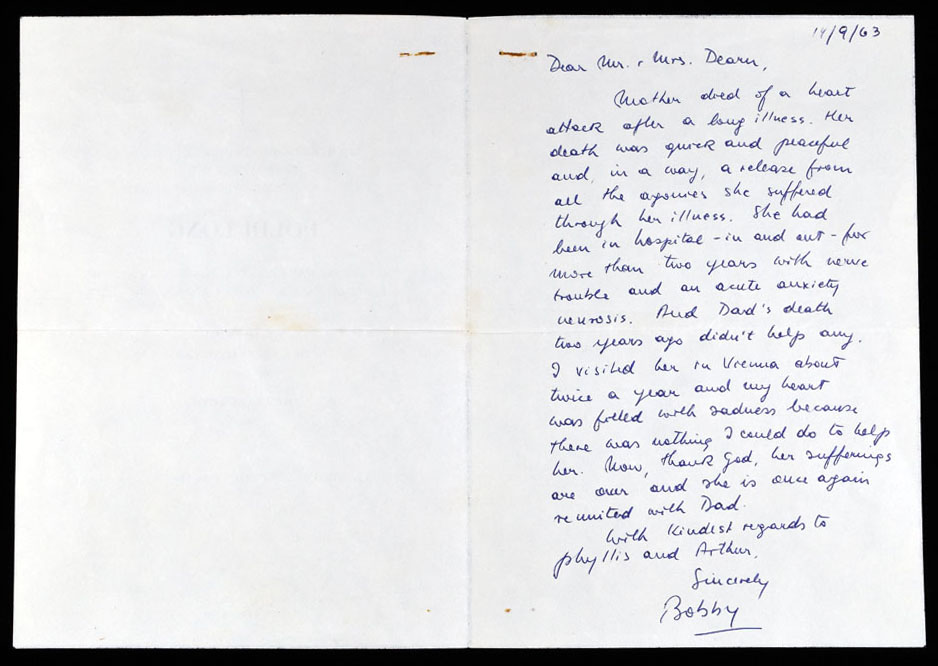 14/9/63
Dear Mr. + Mrs. Dearn,
Mother died of a heart
attack after a long illness. Her
death was quick and peaceful
and, in a way, a release from
all the agonies she suffered
through her illness. She had
been in hospital - in and out - for
more than two years with nerve
trouble and an acute anxiety
neurosis. And Dad's death
two years ago didn't help any.
I visited her in Vienna about
twice a year and my heart
was filled with sadness because
there was nothing I could do to help
her. Now, thank God, her sufferings
are over and she is once again
reunited with Dad.
With kindest regards to
Phyllis and Arthur.
Sincerely
Bobby